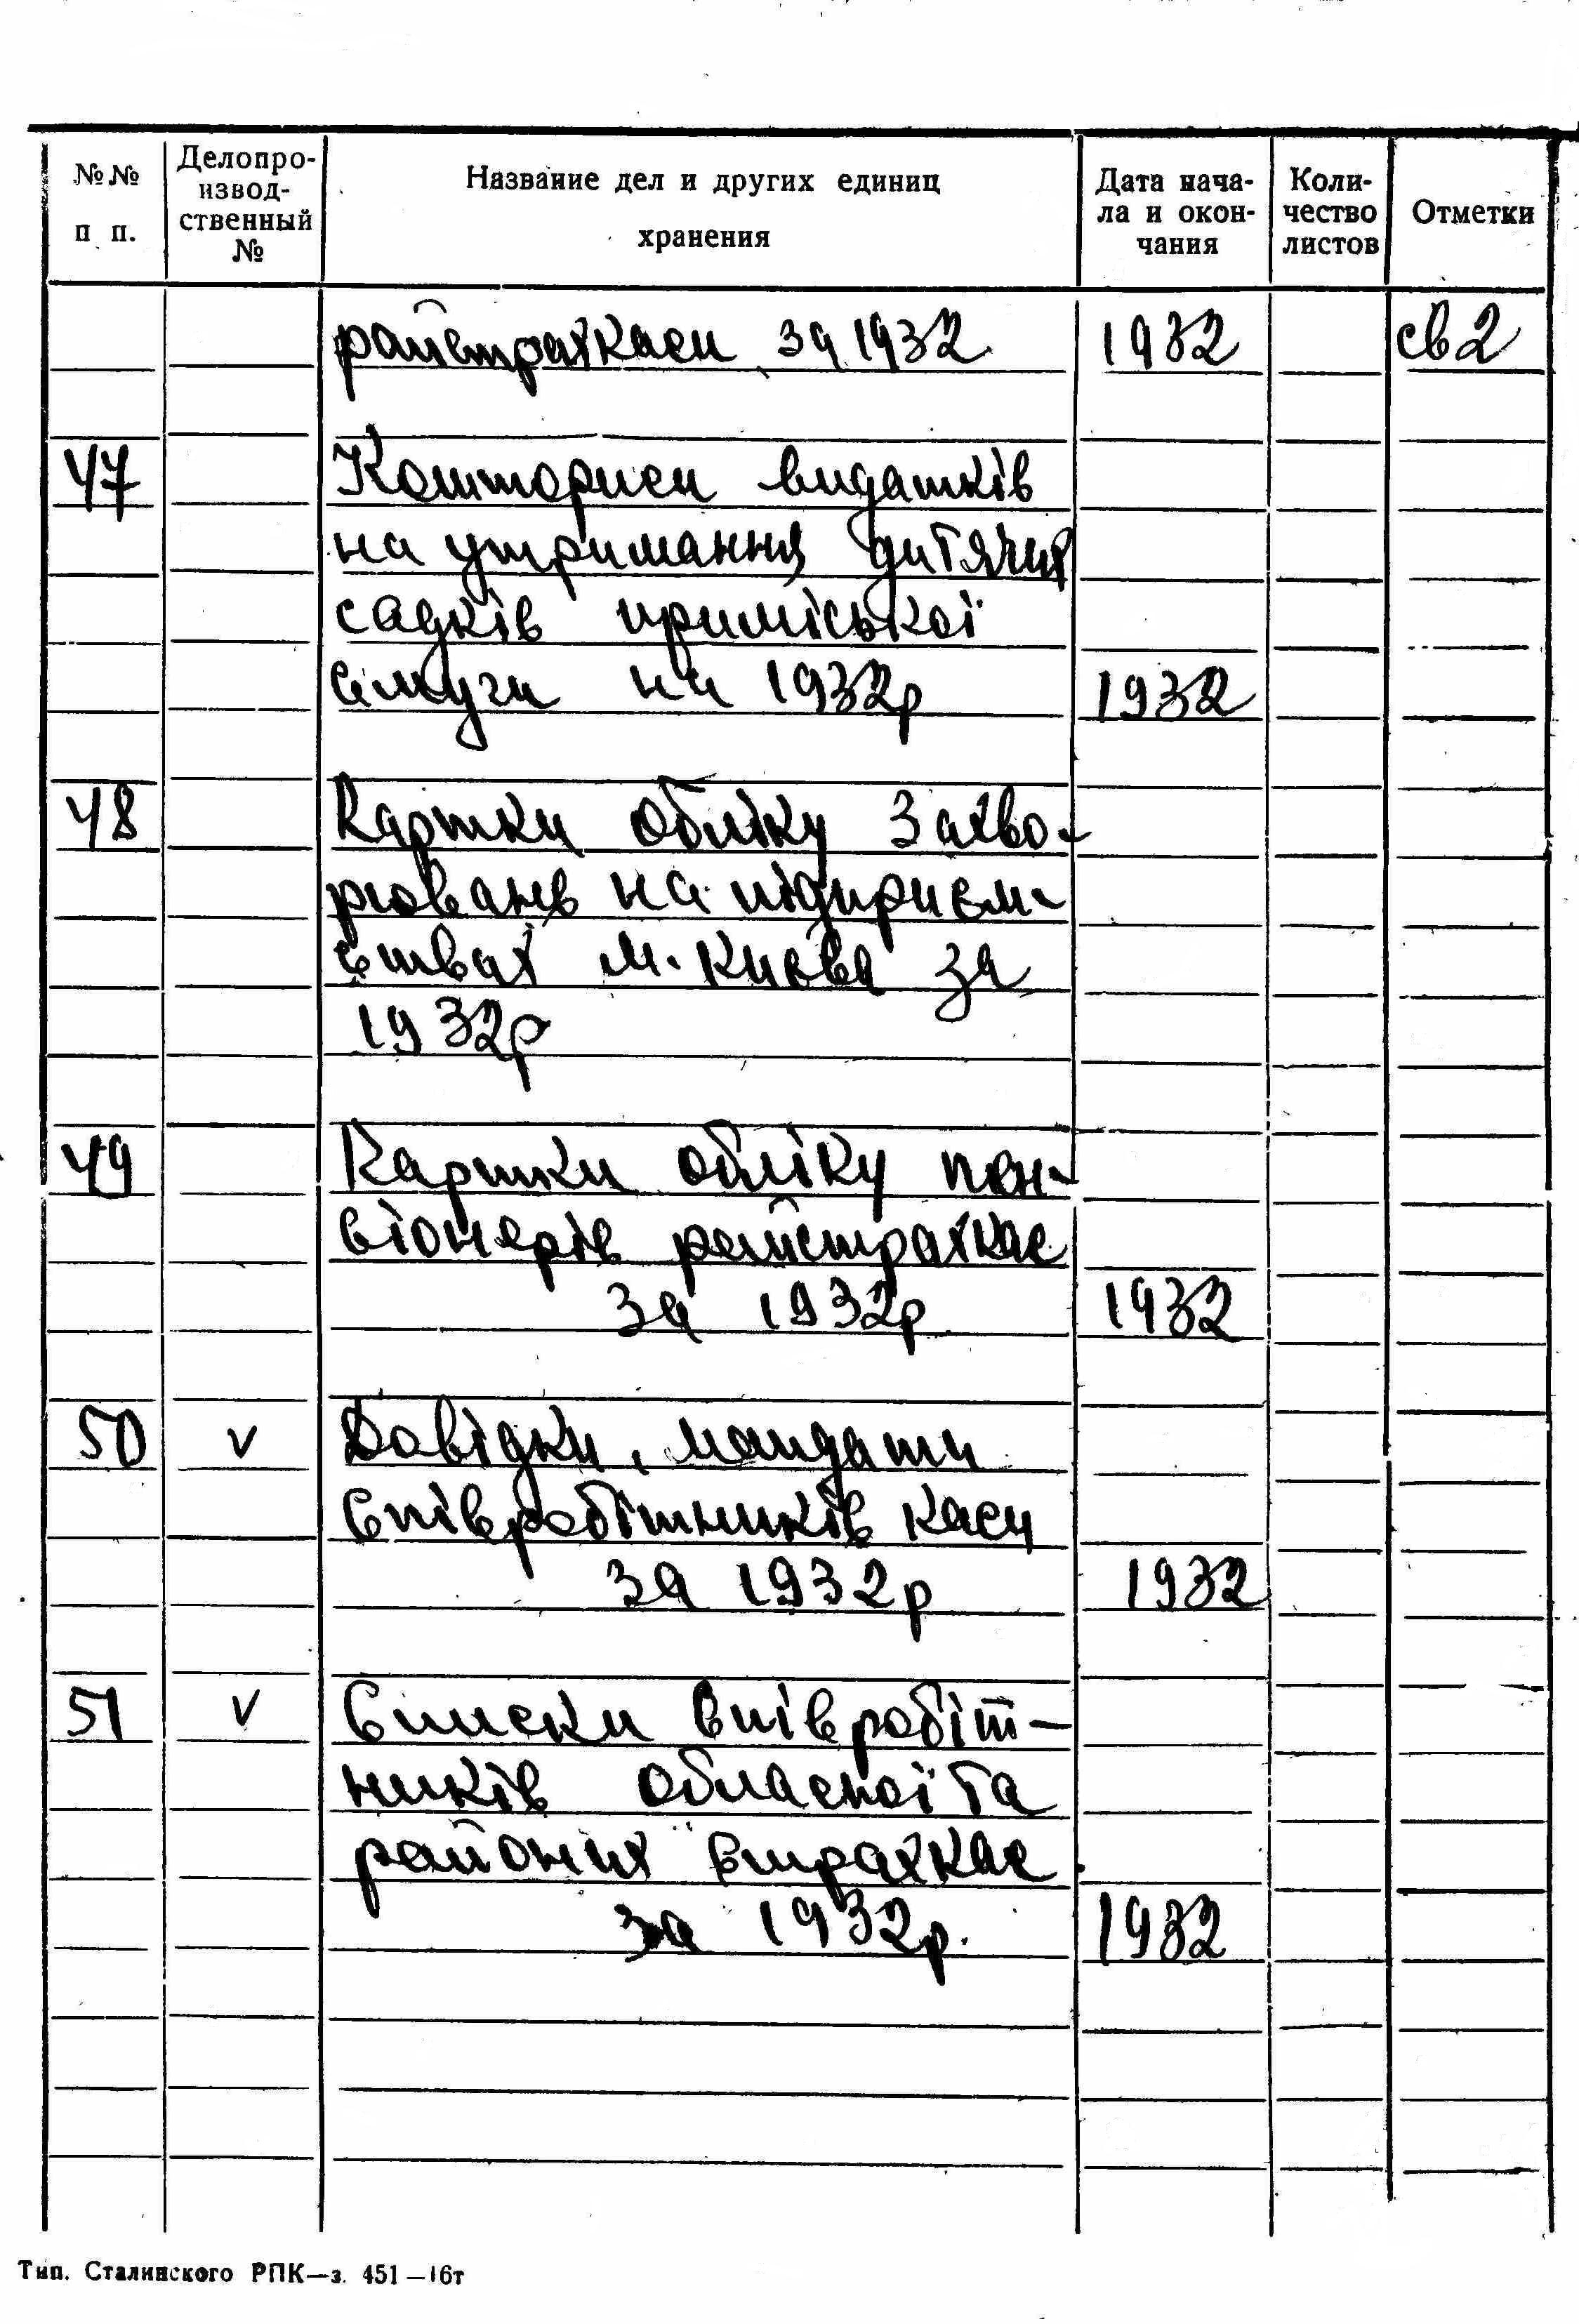 №№ п п. Делопро-извод-ственный № Название дел и других единиц хранения Дата нача-ла и окон-чания Коли-чество листов Отметки
райстрахкаси за 1932 1932 св 2
47 Кошториси видатків
на утримання дитячих
садків приміської
смуги на 1932р 1932
48 Картки обліку захво-
рювань на підприєм-
ствах м. Києва за
1932р
49 Картки обліку пен-
сіонерів райстрахкас
за 1932р 1932
50 v Довідки, мандати
співробітників каси
за 1932р 1932
51 v Списки співробіт-
ників обласної та
районих страхкас
за 1932р. 1932
Тип. Сталинского РПК—з. 451—16т